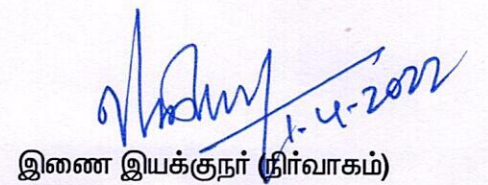 1-4-2022
இணை இயக்குநர் (நிர்வாகம்)